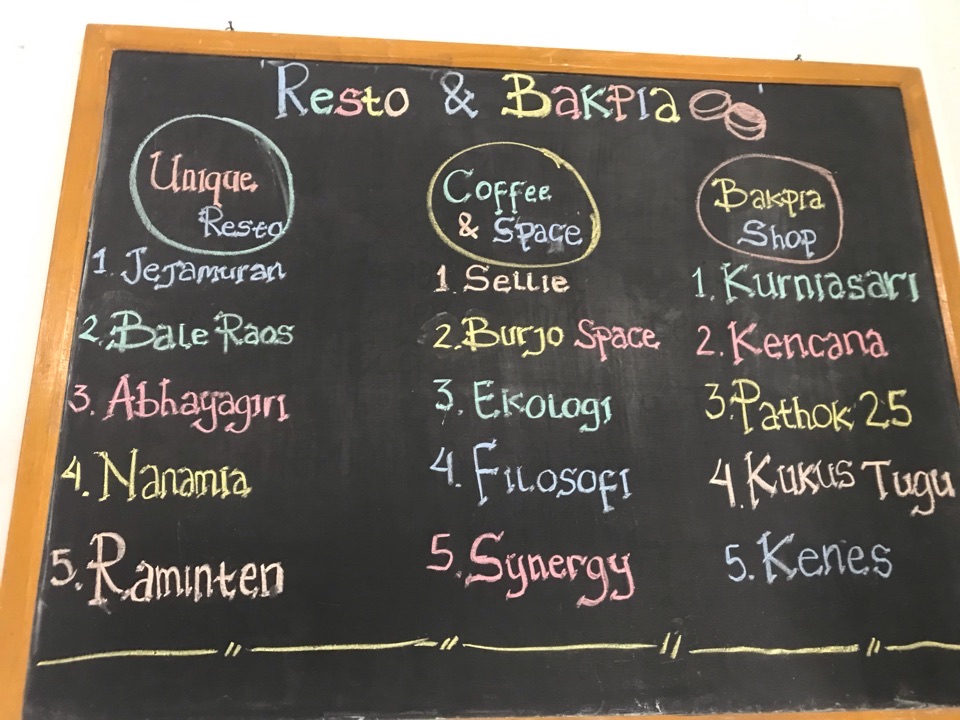 Resto & Bakpia
Unique
Resto
1. Jejamuran
2. Bale Raos
3. Abhayagiri
4. Nanamia
5. Raminten
Coffee
& Space
1. Sellie
2. Burjo Space
3. Ekologi
4. Filosofi
5. Synergy
Bakpia
Shop
1. Kurniasari
2. Kencana
3. Pathok 25
4. Kukus Tugu
5. Kenes